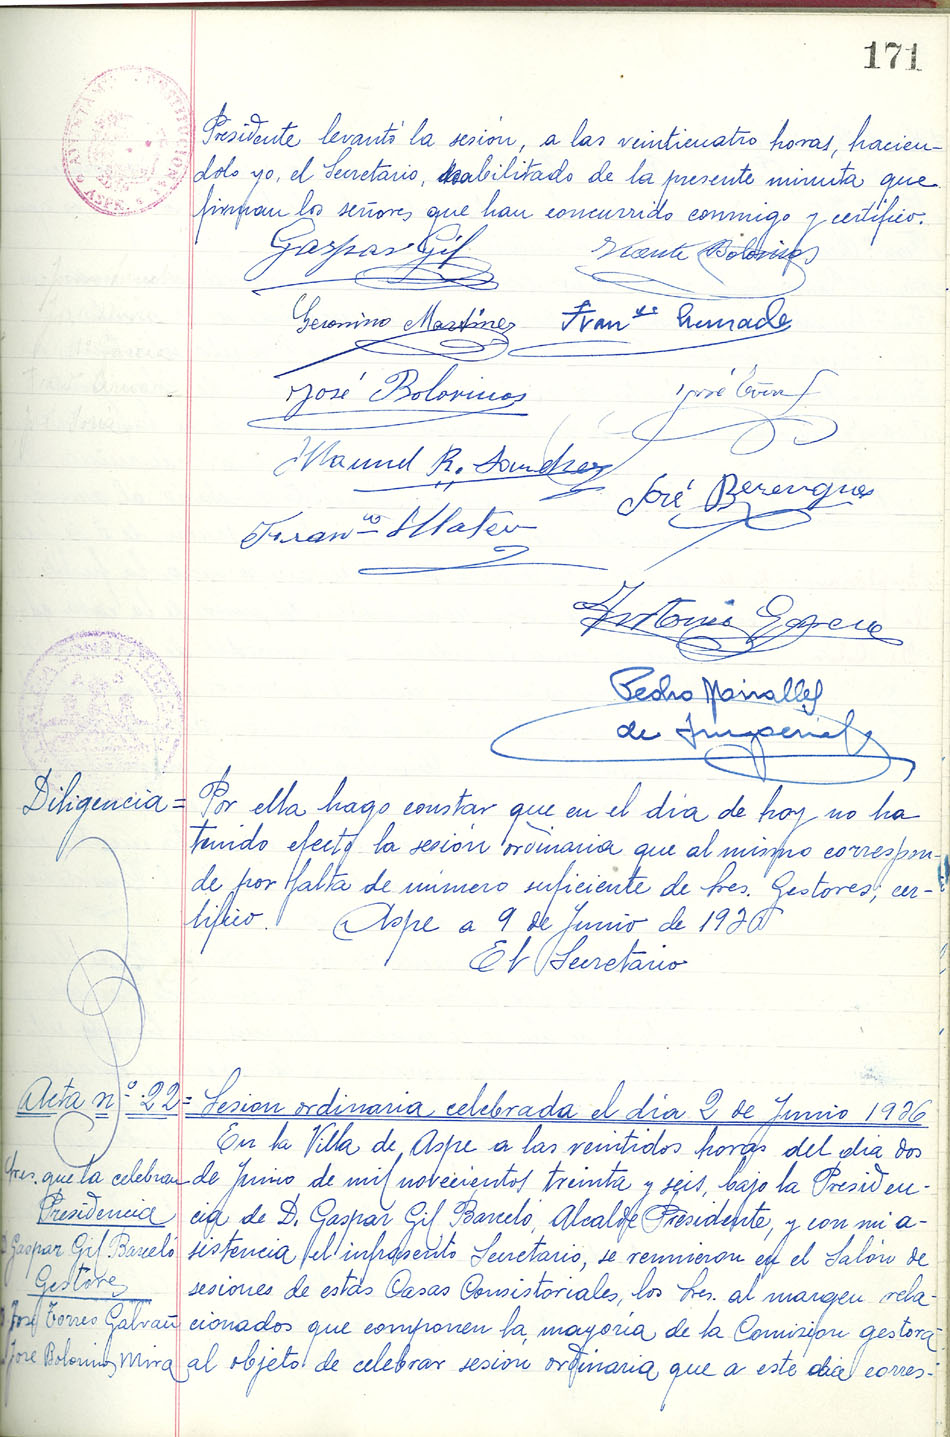 171
Presidente levantó la sesión, a las veinticuatro horas, hacien-
dolo yo, el Secretario, habilitado de la presente minuta que
firman los señores que han concurrido conmigo y certifico.
Gaspar Gil
Vicente Bolorinos
Geronimo Martinez
Franco
José Bolorinos
José
Manuel R. Sanchez
José Berenguer
Franco Mater
Antonio
Pedro
de Imperial
Diligencia = Por ella hago constar que en el dia de hoy no ha
tenido efecto la sesión ordinaria que al mismo correspon-
de por falta de número suficiente de Sres. Gestores; cer-
tifico. Aspe a 9 de Junio de 1936
El Secretario
Acta nº 22 = Sesion ordinaria celebrada el dia 2 de Junio 1936
En la Villa de Aspe a las veintidos horas del dia dos
de Junio de mil novecientos treinta y seis, bajo la Presiden-
cia de D. Gaspar Gil Barceló, Alcalde Presidente, y con mi a-
sistencia el infrascrito Secretario, se reunieron en el Salón de
sesiones de estas Casas Consistoriales, los Sres. al margen rela-
cionados que componen la mayoria de la Comision gestora
al objeto de celebrar sesión ordinaria que a este dia corres-
Sres. que la celebran
Presidencia
D. Gaspar Gil Barceló
Gestores
José Torres Galvañ
José Bolorinos Mira